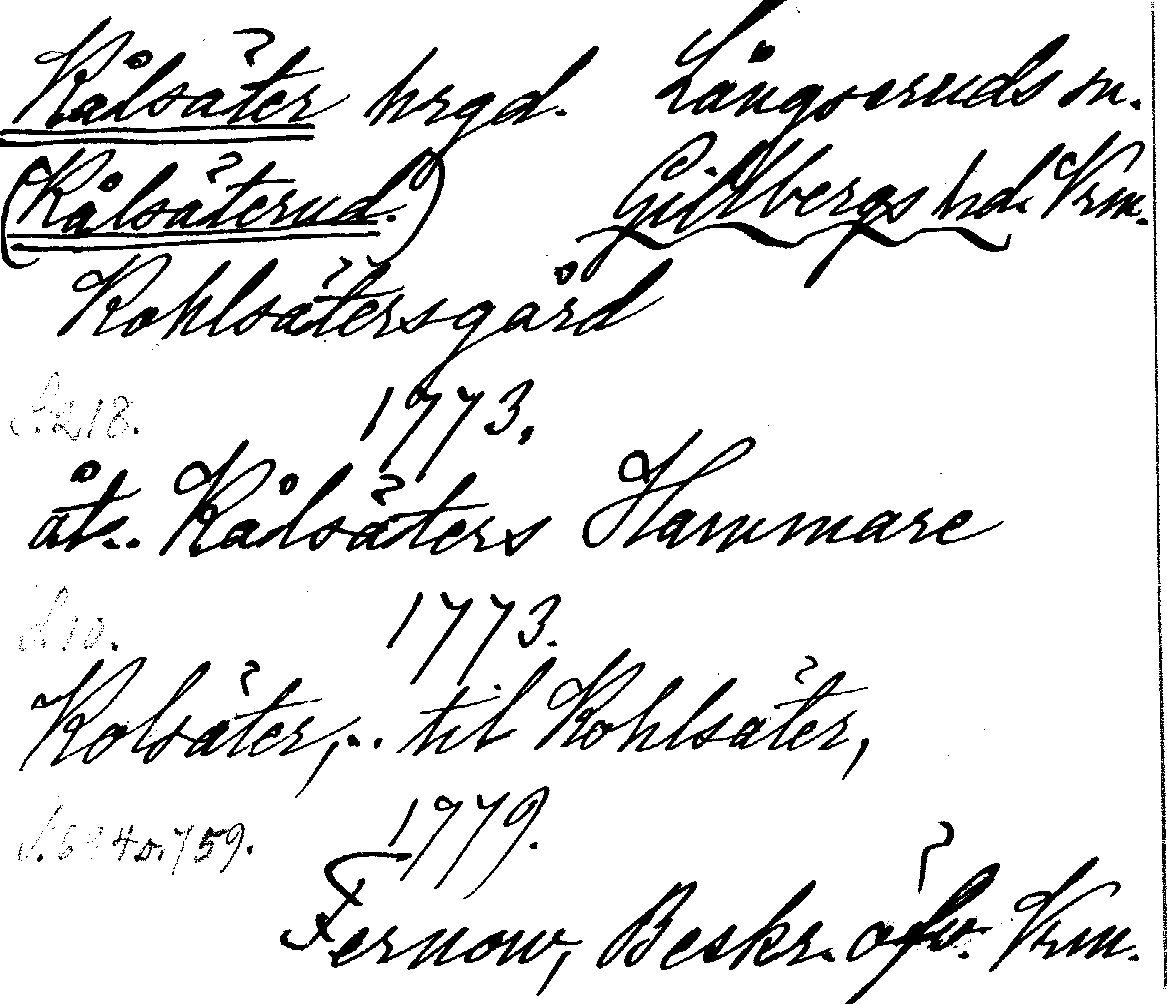 Kålsäter hrgd. Långseruds sn.
(Kålsäterud.) Gillbergs hd. Vrm.
Kohlsätersgård
S. 218. 1773.
åt.. Kålsäters Hammare
S. 10. 1773.
Kolsäter,.. til Kohlsäter,
1779.
Fernow, Beskr. öfv. Vrm.